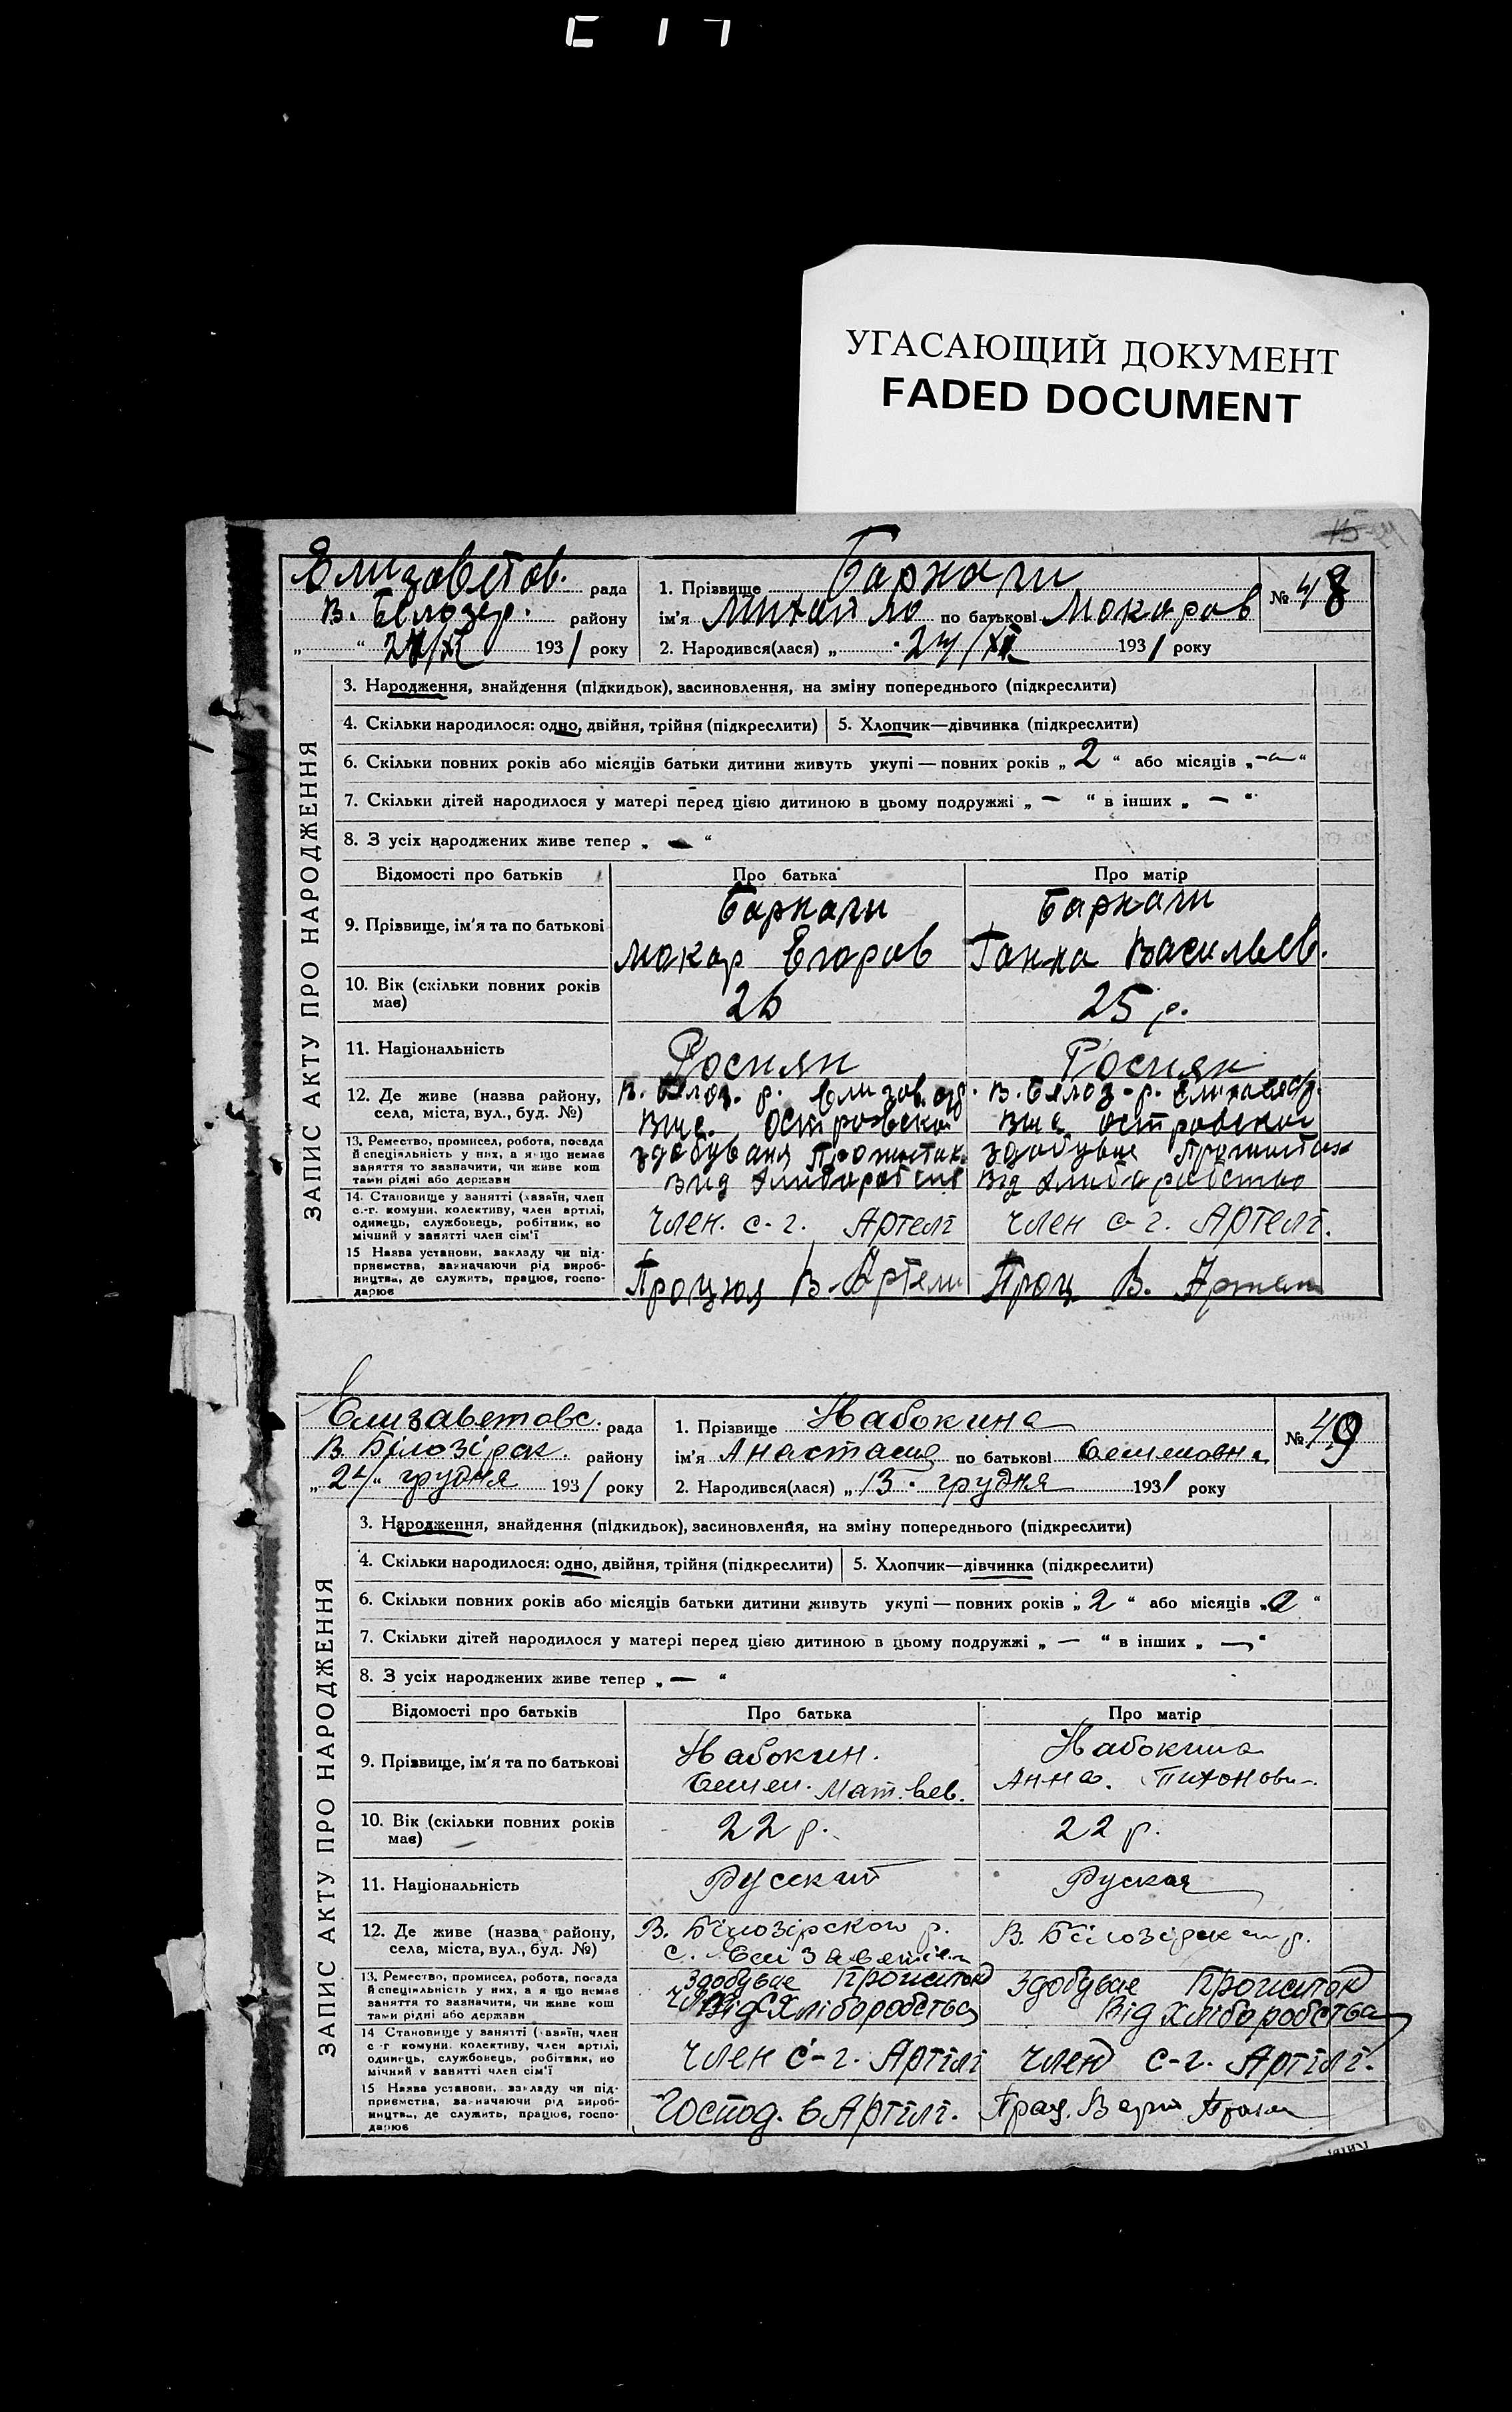 УГАСАЮЩИЙ ДОКУМЕНТ
FADED DOCUMENT
ЗАПИС АКТУ ПРО НАРОДЖЕННЯ
Елизаветов. рада
В. Белозер. району
„ “ 193 1 року
1. Прізвище
ім'я Михайло по батькові Макаров
№ 48
2. Народився(лася) „ “ 193 1 року
3. Народження, знайдення (підкидьок), засиновлення, на зміну попереднього (підкреслити)
4. Скільки народилося: одно, двійня, трійня (підкреслити) 5. Хлопчик—дівчинка (підкреслити)
6. Скільки повних років або місяців батьки дитини живуть укупі — повних років „ 2 “ або місяців „ — “
7. Скільки дітей народилося у матері перед цією дитиною в цьому подружжі „ — “ в інших „ — “
8. З усіх народжених живе тепер „ — “
Відомості про батьків Про батька Про матір
9. Прізвище, ім'я та по батькові
Макар Егоров Ганна Васильев.
10. Вік (скільки повних років має) 26 25 р.
11. Національність Росиян Росиян
12. Де живе (назва району, села, міста, вул., буд. №)
13. Ремество, промисел, робота, посада й спеціяльність у них, а якщо немає заняття то зазначити, чи живе коштами рідні або держави
14. Становище у занятті (хазяїн, член с.-г. комуни, колективу, член артілі, одинець, службовець, робітник, помічний у занятті член сім'ї
член. с-г. Артелі член с-г. Артелі.
15 Назва установи, закладу чи підприємства, зазначаючи рід виробництва, де служить, працює, господарює
Процюя В. Артели Проц В. Артели
ЗАПИС АКТУ ПРО НАРОДЖЕННЯ
Елизаветовс. рада
В. Білозірск. району
„ 24 “ грудня 193 1 року
1. Прізвище Набокина
ім'я Анастасия по батькові Семеновна
№ 49
2. Народився(лася) „ 13 “ грудня 193 1 року
3. Народження, знайдення (підкидьок), засиновлення, на зміну попереднього (підкреслити)
4. Скільки народилося: одно, двійня, трійня (підкреслити) 5. Хлопчик—дівчинка (підкреслити)
6. Скільки повних років або місяців батьки дитини живуть укупі — повних років „ 2 “ або місяців „ “
7. Скільки дітей народилося у матері перед цією дитиною в цьому подружжі „ — “ в інших „ — “
8. З усіх народжених живе тепер „ — “
Відомості про батьків Про батька Про матір
9. Прізвище, ім'я та по батькові
Набокин. Набокина
Семен. Матвев. Анна. Тихонови
10. Вік (скільки повних років має) 22 р. 22 р.
11. Національність Русский Руская
12. Де живе (назва району, села, міста, вул., буд. №)
В. Білозірсков р. В. Білозірск р.
13. Ремество, промисел, робота, посада й спеціяльність у них, а якщо немає заняття то зазначити, чи живе коштами рідні або держави
Здобувае Прожиток Здобувае Прожиток
Від Хліборобства Від Хліборобства
14 Становище у занятті (хазяїн, член с-г комуни, колективу, член артілі, одинець, службовець, робітник, помічний у занятті член сім'ї
член с-г. Артілі член с-г. Артілі.
15 Назва установи, закладу чи підприємства, зазначаючи рід виробництва, де служить, працює, господарює
Господ. в Артілі. Прац.